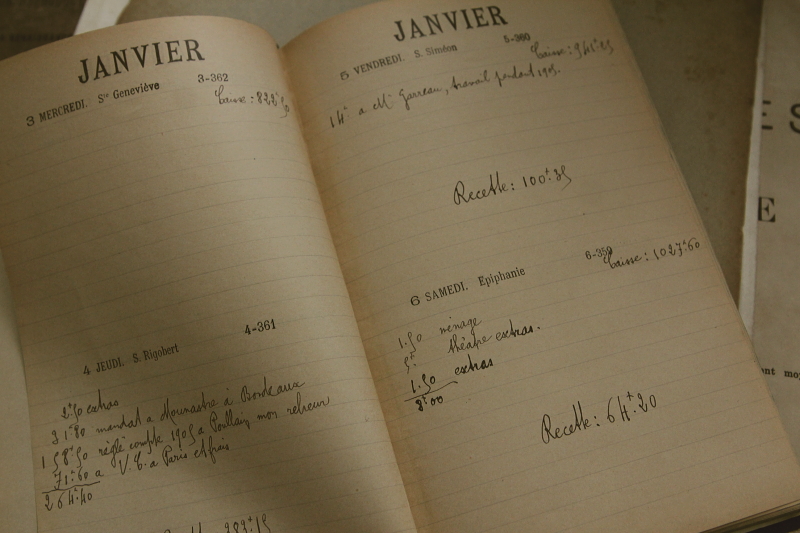 JANVIER
3 MERCREDI. Ste Geneviève 3-362
Caisse : 822f.50
4 JEUDI. S. Rigobert 4-361
2f50 extras
31f80 mandat a Mounastre à Bordeaux
158f50 réglé compte 1905 a Poullain, mon relieur
71f.60 a V. C. a Paris et frais
264f.40
383f15
JANVIER
5 VENDREDI. S. Siméon 5-360
Caisse : 941f25
14f. a Mr Garreau, travail pendant 1905.
Recette : 100f.35
6 SAMEDI. Epiphanie 6-359
Caisse : 1027f60
1.50 ménage
5f. théatre extras.
1.50 extras
8f00
Recette : 64f.20
ES
E